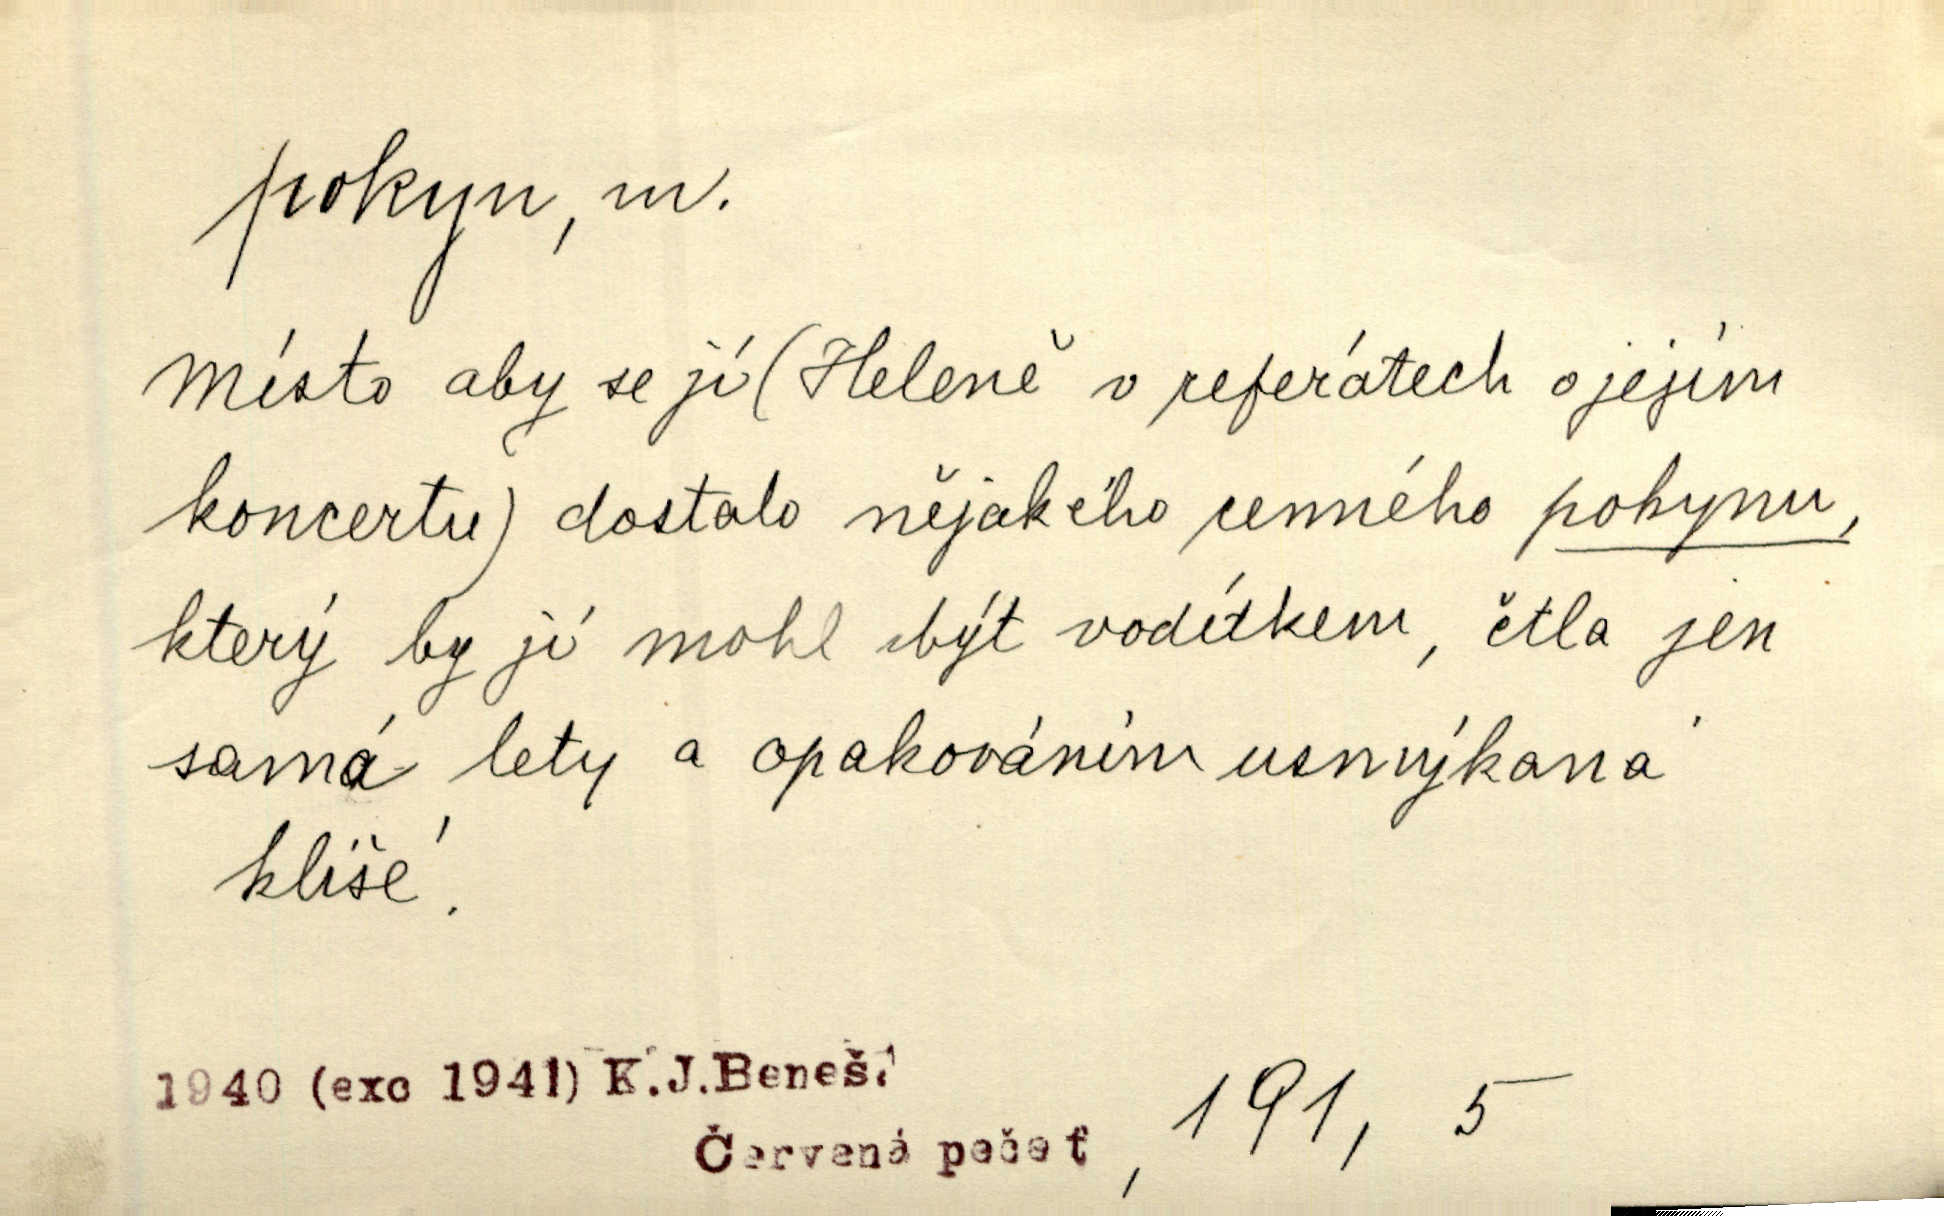 pokyn, m.
Místo aby se jí (Heleně v referátech o jejím
koncertu) dostalo nějakého cenného pokynu,
který by jí mohl být vodítkem, četla jen
samá lety a opakováním usmýkaná
klišé.
1940 (exc 1941) K.J.Beneš.
Červená pečeť, 191, 5